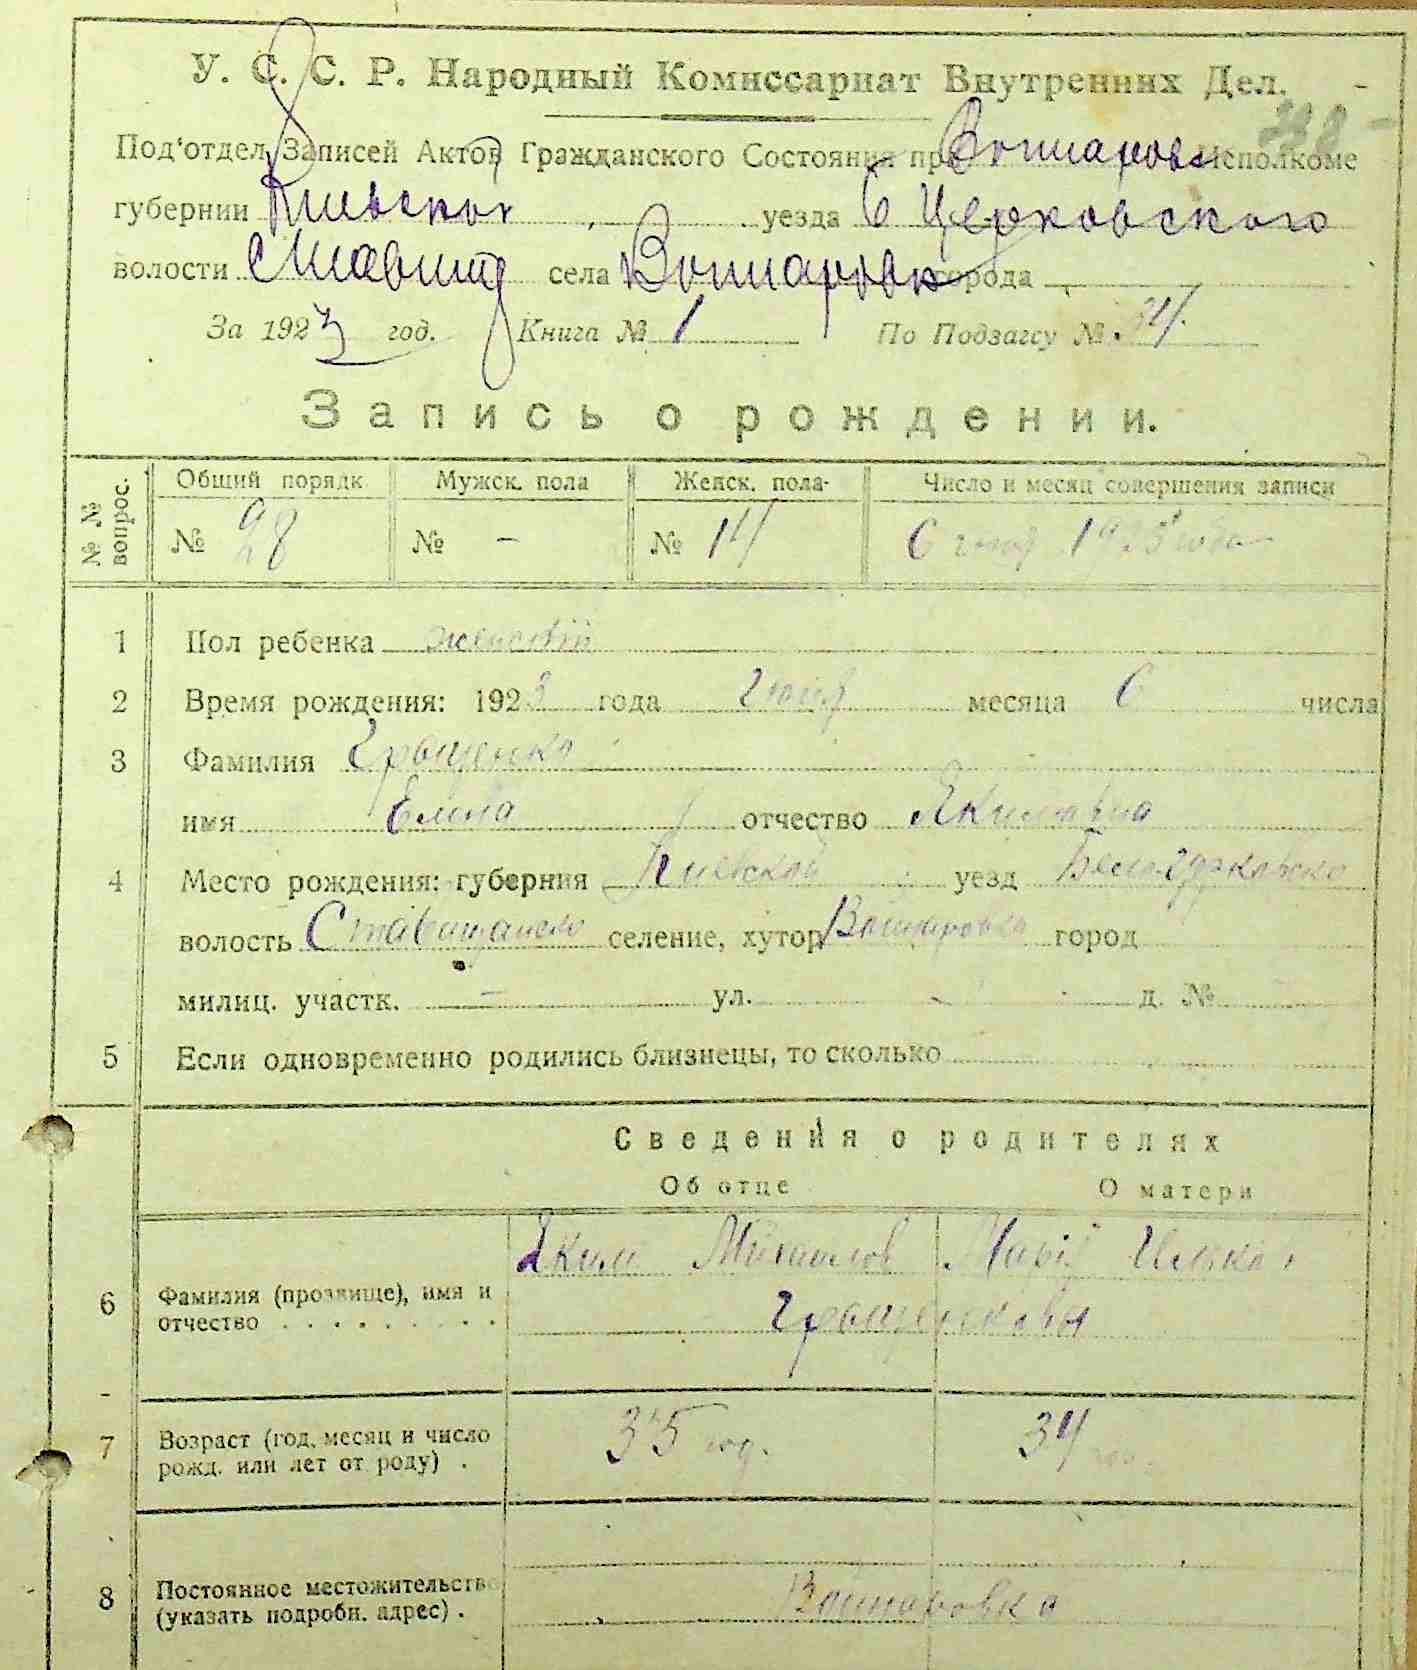 У. С. С. Р. Народный Комиссариат Внутренних Дел.
Под'отдел Записей Актов Гражданского Состояния при Исполкоме
губернии Киевской уезда Б Церковского
волости села города
За 1923 год. Книга № 1 По Подзагсу № 34.
Запись о рождении.
№ № вопрос. Общий порядк. Мужск. пола Женск. пола Число и месяц совершения записи
№ 28 № - № 14 6 1923 года
1 Пол ребенка женский
2 Время рождения: 1923 года месяца 6 числа
3 Фамилия Грощенко
имя Елена отчество Якимовна
4 Место рождения: губерния Киевской уезд Белоцерковско
волость Ставищанско селение, хутор Войнаровка город
милиц. участк. - ул. - д. №
5 Если одновременно родились близнецы, то сколько
Сведения о родителях
Об отце О матери
6 Фамилия (прозвище), имя и отчество Яким Михайлов Марія
Грощенковы
7 Возраст (год, месяц и число рожд. или лет от роду) . 35 год. 34
8 Постоянное местожительство (указать подробн. адрес) . Войнаровка